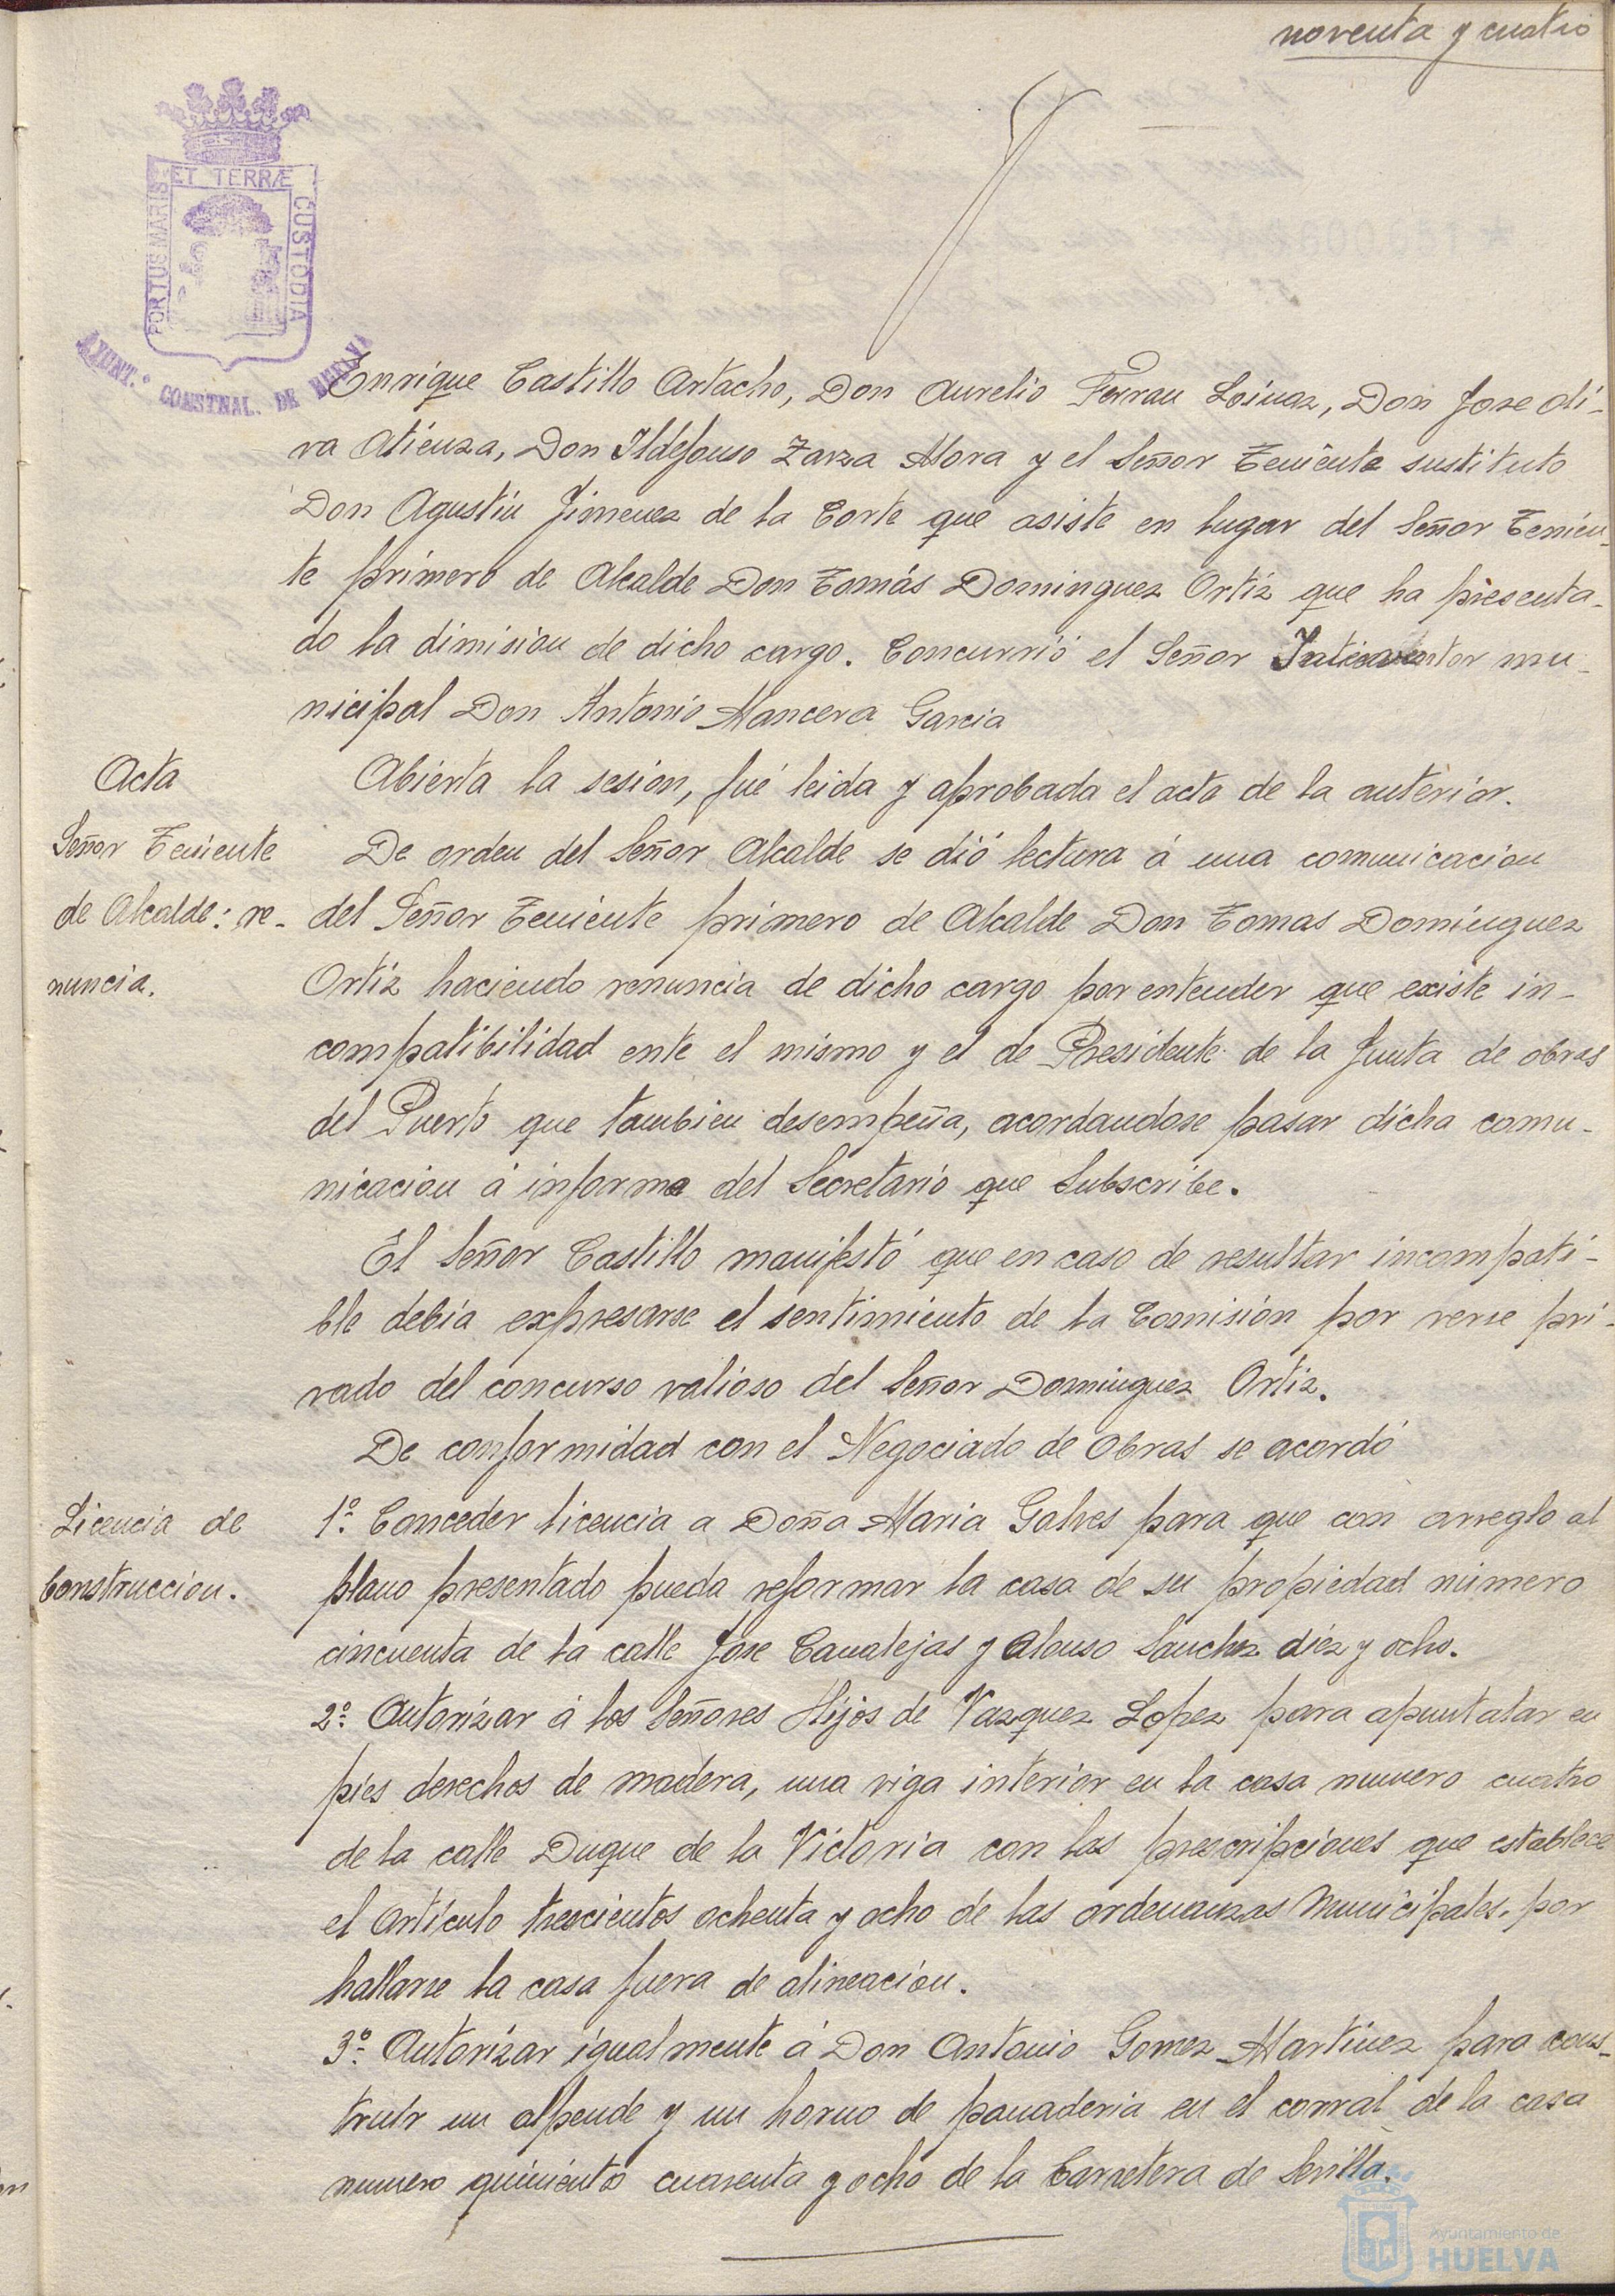 noventa y cuatro
PORTUS MARIS ET TERRÆ CUSTODIA
AYUNT.º CONSTNAL. DE HUELVA
Enrique Castillo Artacho, Don Aurelio Ferrau Loinaz, Don Jose Oli-
va Atienza, Don Ildefonso Zarza Mora y el Señor Teniente sustituto
Don Agustin Jimenez de la Corte que asiste en lugar del Señor Tenien-
te primero de Alcalde Don Tomás Dominguez Ortiz que ha presenta-
do la dimision de dicho cargo. Concurrió el Señor Interventor mu-
nicipal Don Antonio Mancera Garcia
Acta
Abierta la sesion, fué leida y aprobada el acta de la anterior.
Señor Teniente
de Alcalde: re-
nuncia.
De orden del Señor Alcalde se dió lectura á una comunicacion
del Señor Teniente primero de Alcalde Don Tomas Dominguez
Ortiz haciendo renuncia de dicho cargo por entender que existe in-
compatibilidad ente el mismo y el de Presidente de la Junta de obras
del Puerto que tambien desempeña, acordandose pasar dicha comu-
nicacion á informe del Secretario que Subscribe.
El Señor Castillo manifestó que en caso de resultar incompati-
ble debia expresarse el sentimiento de la Comisión por verse pri-
vado del concurso valioso del Señor Dominguez Ortiz.
De conformidad con el Negociado de Obras se acordó
Licencia de
construccion.
1º. Conceder licencia a Doña Maria Galves para que con arreglo al
plano presentado pueda reformar la casa de su propiedad número
cincuenta de la calle Jose Canalejas y Alonso Sanchez diez y ocho.
2º. Autorizar á los Señores Hijos de Vazquez Lopez para apuntalar en
pies derechos de madera, una viga interior en la casa numero cuatro
de la calle Duque de la Victoria con las prescripciones que establece
el Artículo trescientos ochenta y ocho de las ordenanzas Municipales, por
hallarse la casa fuera de alineacion.
3º. Autorizar igualmente á Don Antonio Gomez Martinez para cons-
truir un alpende y un horno de panaderia en el corral de la casa
numero quiniento cuarenta y ocho de la Carretera de Sevilla.
Ayuntamiento de
HUELVA